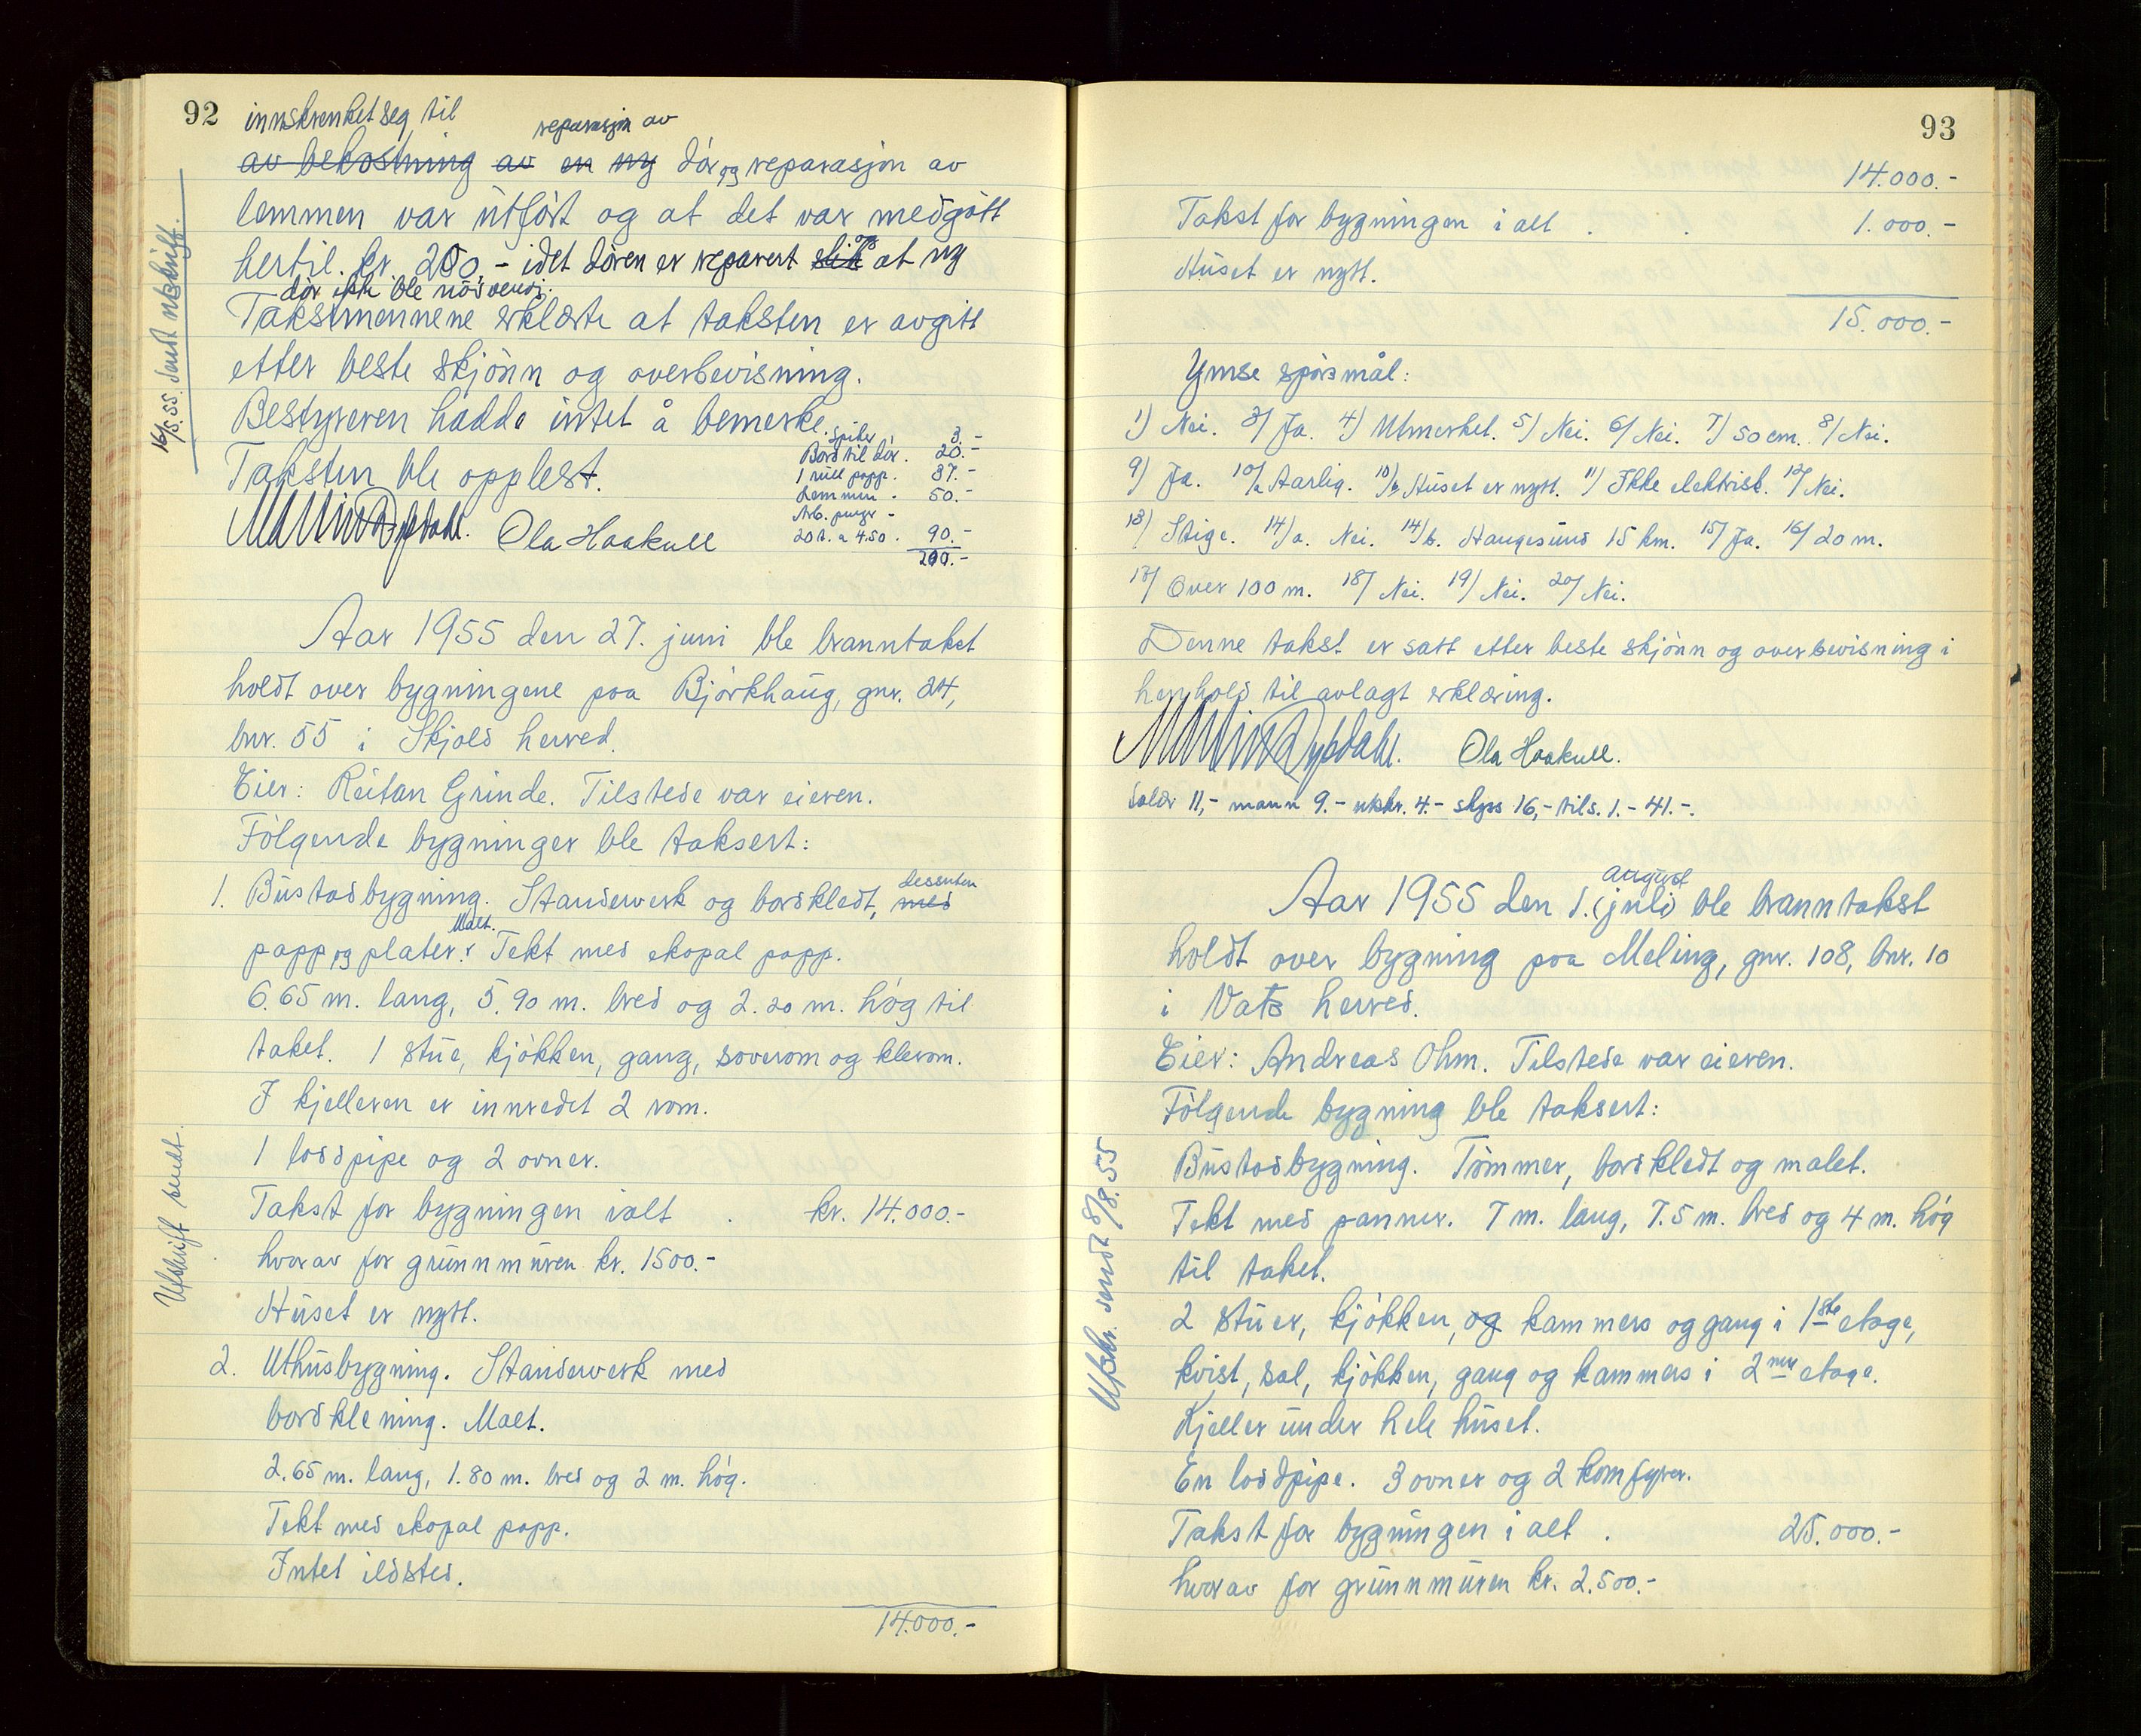 92
innskrenket seg til
reparasjon av
av bekostning av en ny dør og reparasjon av
lemmen var utført og at det var medgått
hertil kr. 200.- idet døren er reparert slik at ny
dør ikke ble nødvendi.
Takstmennene erklærte at taksten er avgitt
etter beste skjønn og overbevisning.
Bestyreren hadde intet å bemerke.
Taksten ble opplest.
Spiker 3.-
Bord til dør. 20.-
1 rull papp. 37.-
Lemmen - 50.-
Arb. penger -
20 t. a 4.50. 90.-
200.-
Ola Haakull
16/8.55. Sendt utskrift.
Aar 1955 den 27. juni ble branntakst
holdt over bygningene paa Bjørkhaug, gnr. 24,
bnr. 55 i Skjold herred.
Eier: Reitan Grinde. Tilstede var eieren.
Følgende bygninger ble taksert:
1. Bustadbygning. Standerverk og bordkledt, med dessuten
papp og plater. Malt. Tekt med ekopal papp.
6.65 m. lang, 5.90 m. bred og 2.20 m. høg til
taket. 1 stue, kjøkken, gang, soverom og klerom.
I kjelleren er innredet 2 rom.
1 loddpipe og 2 ovner.
Takst for bygningen ialt . kr. 14.000.-
hvorav for grunnmuren kr. 1500.-
Huset er nytt.
Utskrift sendt.
2. Uthusbygning. Standerverk med
bordkledning. Malt.
2.65 m. lang, 1.80 m. bred og 2 m. høg.
Tekt med ekopal papp.
Intet ildsted.
14.000.-
93
14.000.-
Takst for bygningen i alt . . 1.000.-
Huset er nytt.
15.000.-
Ymse spørsmål:
1) Nei. 3/ Ja. 4) Utmerket. 5) Nei. 6/ Nei. 7) 50 cm. 8/ Nei.
9) Ja. 10/a Aarlig. 10/b Huset er nytt. 11) Ikke elektrisk. 12/ Nei.
13) Stige. 14/a. Nei. 14/b. Haugesund 15 km. 15/ Ja. 16/ 20 m.
17/ Over 100 m. 18/ Nei. 19/ Nei. 20/ Nei.
Denne takst er satt etter beste skjønn og overbevisning i
henhold til avlagt erklæring.
Ola Haakull.
Salær 11,- mann 9.- utskr. 4.- skyss 16,- tils. 1.- 41.-.
Aar 1955 den 1. (juli) august ble branntakst
holdt over bygning paa Meling, gnr. 108, bnr. 10
i Vats herred.
Eier: Andreas Ohm. Tilstede var eieren.
Følgende bygning ble taksert:
Bustadbygning. Tømmer, bordkledt og malet.
Tekt med panner. 7 m. lang, 7.5 m. bred og 4 m. høg
til taket.
2 stuer, kjøkken, og kammers og gang i 1ste etage,
kvist, sal, kjøkken, gang og kammers i 2nen etage.
Kjeller under hele huset.
En loddpipe. 3 ovner og 2 komfyrer.
Takst for bygningen i alt . 25.000.-
hvorav for grunnmuren kr. 2.500.-
Utskr. sendt 8/8.55